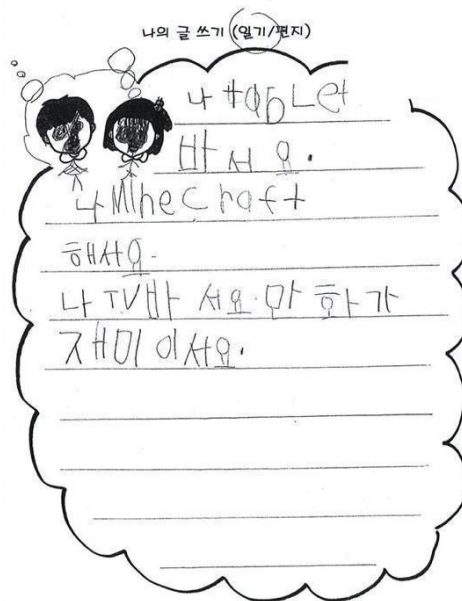 나의 글 쓰기 (일기/편지)
나 tablet
바서요.
나 Minecraft
해서요.
나 TV바 서요. 만화가
재미 이서요.